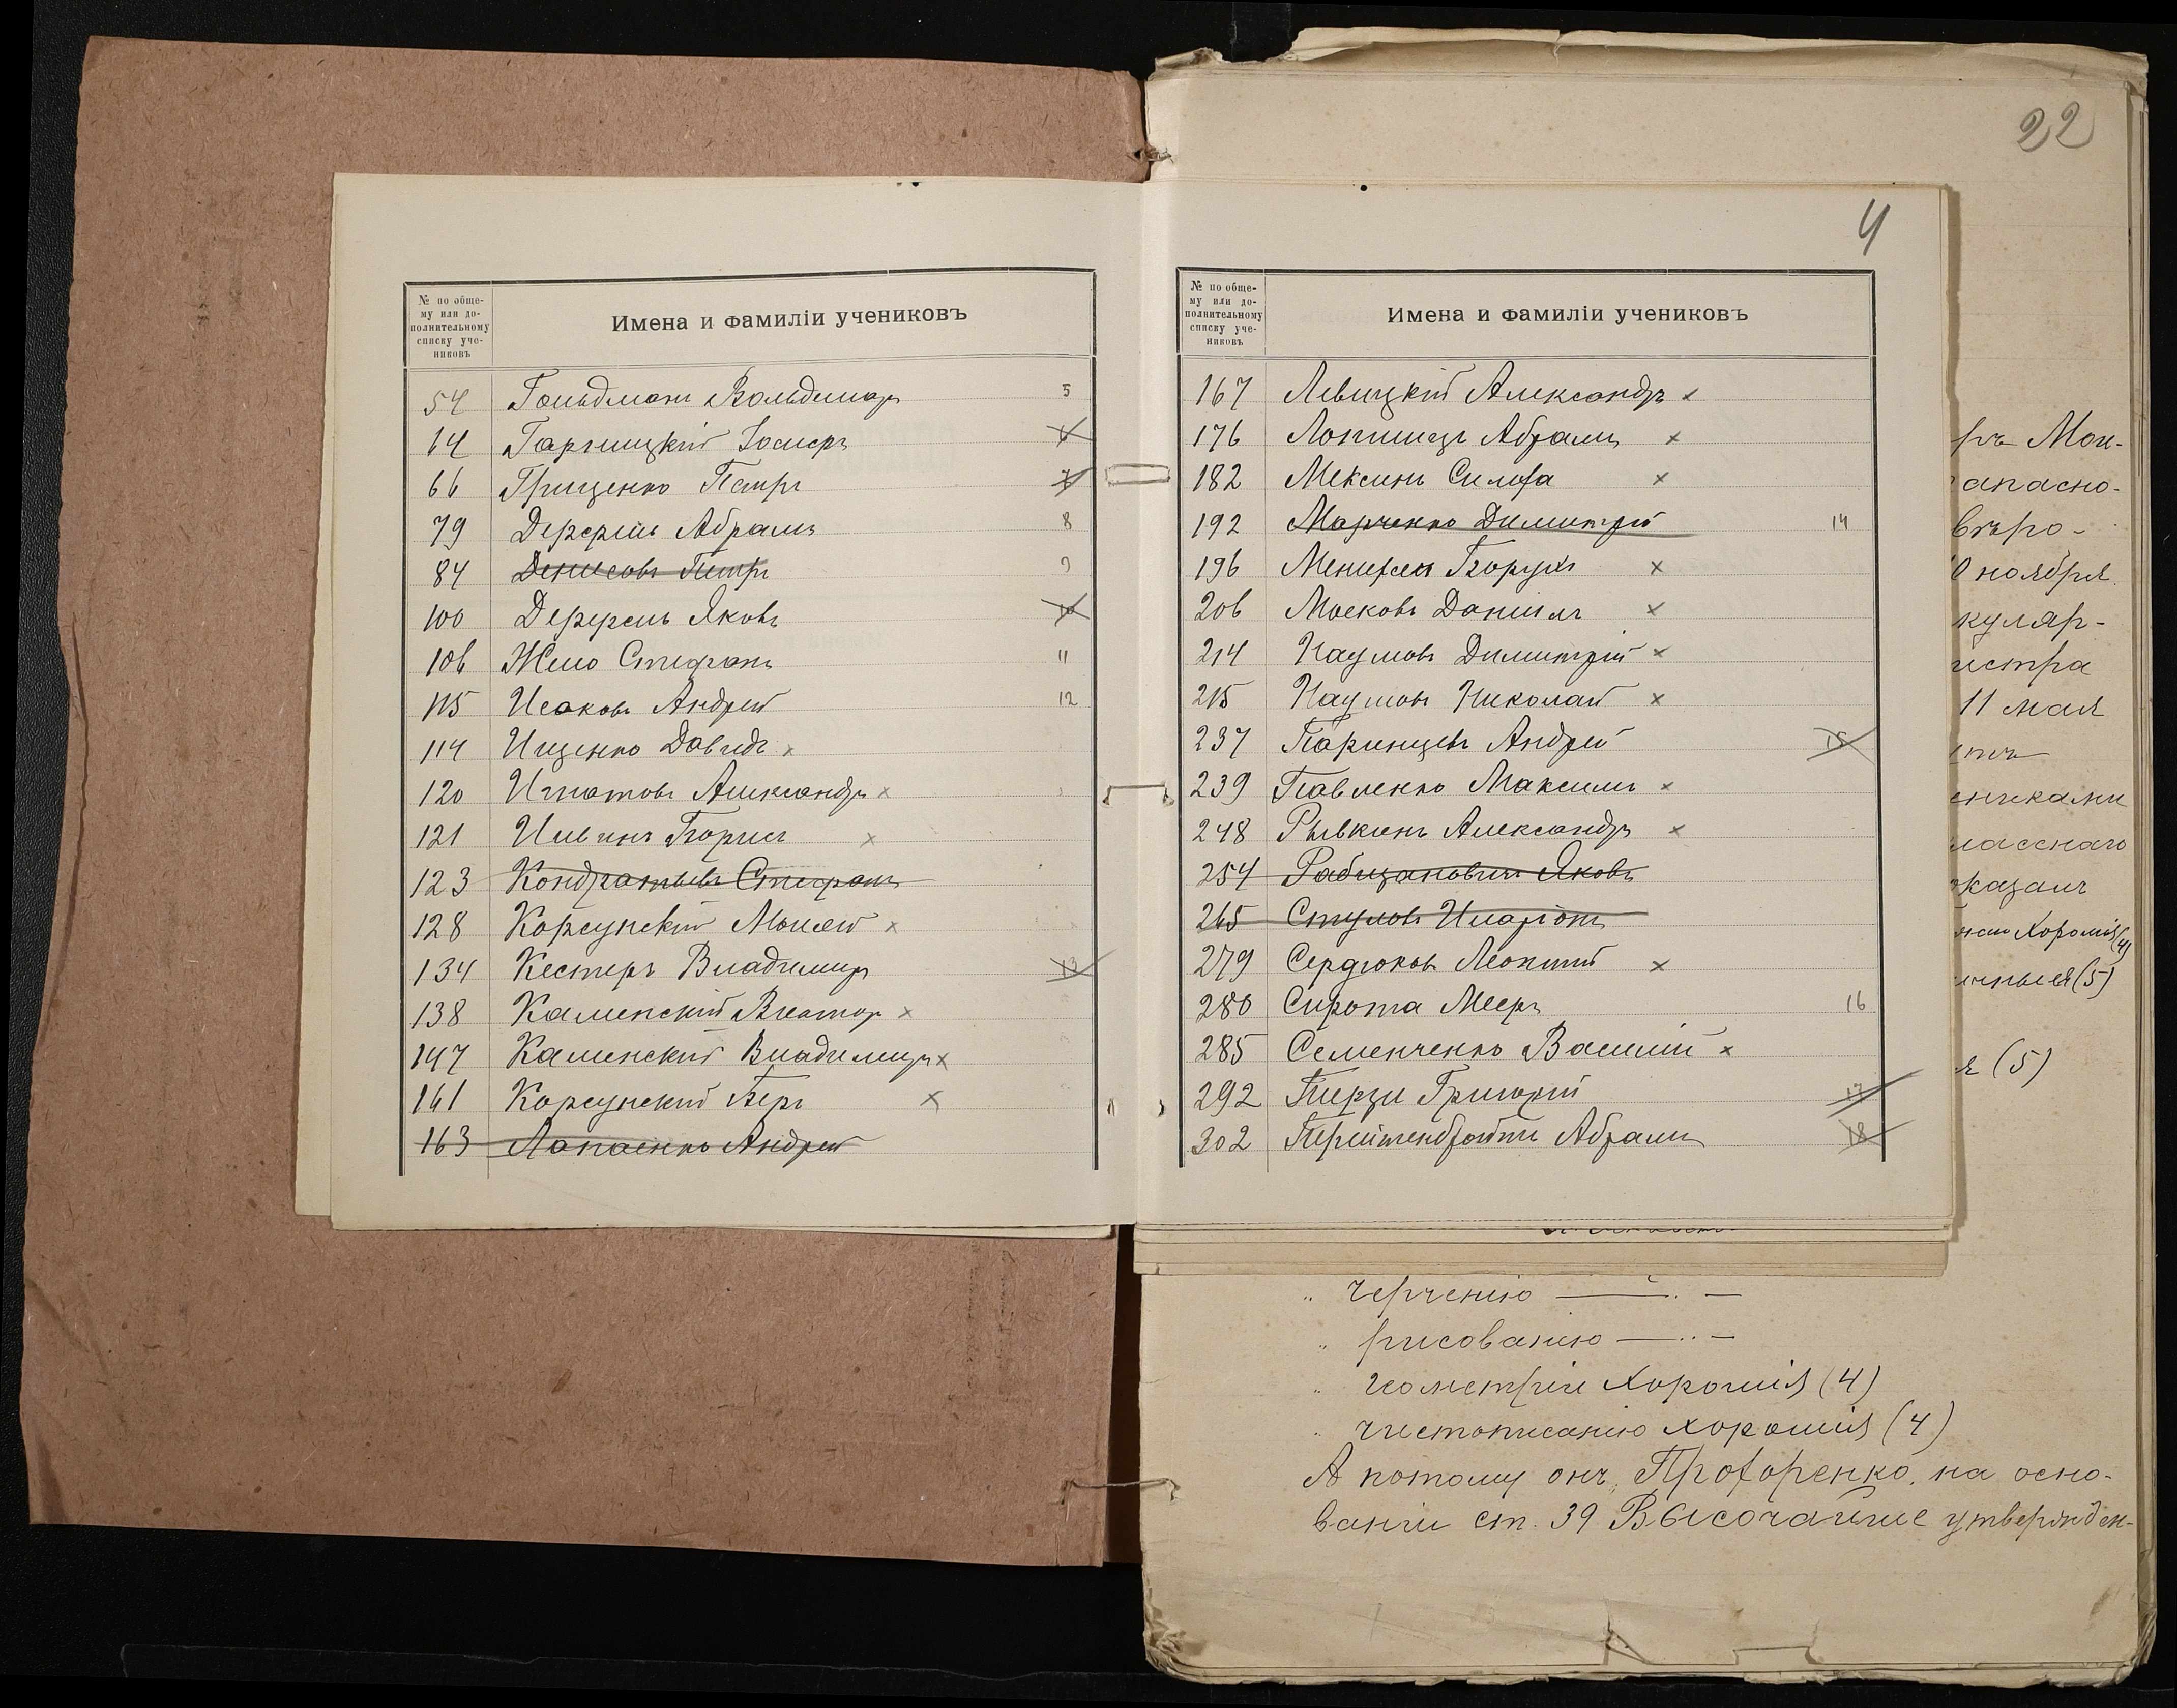 22
4
№ по обще-
му или до-
полнительному
списку уче-
никовъ
Имена и фамиліи учениковъ
54 Гольдманъ Вольдемаръ 5
14 Гарницкій Іосифъ 6
66 Грищенко Петръ 7
79 Абрамъ 8
84 Денисовъ Петръ 9
100 Яковъ 10
106 Стефанъ 11
115 Исаковъ Андрей 12
114 Ищенко Давидъ x
120 Игнатовъ Александръ x
121 Борисъ x
123 Кондратьевъ Стефанъ
128 Корсунскій Моисей x
134 Кестеръ Владимиръ 13
138 Каменскій Викторъ x
147 Каменскій Владимиръ x
161 Корсунскій Беръ x
163 Лапаенко Андрей
№ по обще-
му или до-
полнительному
списку уче-
никовъ
Имена и фамиліи учениковъ
167 Левицкій Александръ x
176 Абрамъ x
182 Мексинъ Симха x
192 Марченко Димитрій 14
196 Борухъ x
206 Московъ Даніилъ x
214 Наумовъ Димитрій x
215 Наумовъ Николай x
237 Паринцевъ Андрей 15
239 Павленко Максимъ x
248 Рывкинъ Александръ x
254 Рабиновичъ Яковъ
265 Стуловъ Иларіонъ
279 Сердюковъ Леонтій x
280 Сирота Мееръ 16
285 Семенченко Василій x
292 Григорій 17
302 Абрамъ 18
ръ Мои-
апасно-
вѣро-
0 ноября
куляр-
истра
11 мая
ениками
лассного
оказалъ
Хорошія (4)
(5)
я (5)
„ черченію — „ —
„ рисованію — „ —
„ геометріи хорошія (4)
„ чистописанію хорошія (4)
А потому онъ, Прохоренко, на осно-
ваніи ст. 39 Высочайше утвержден-